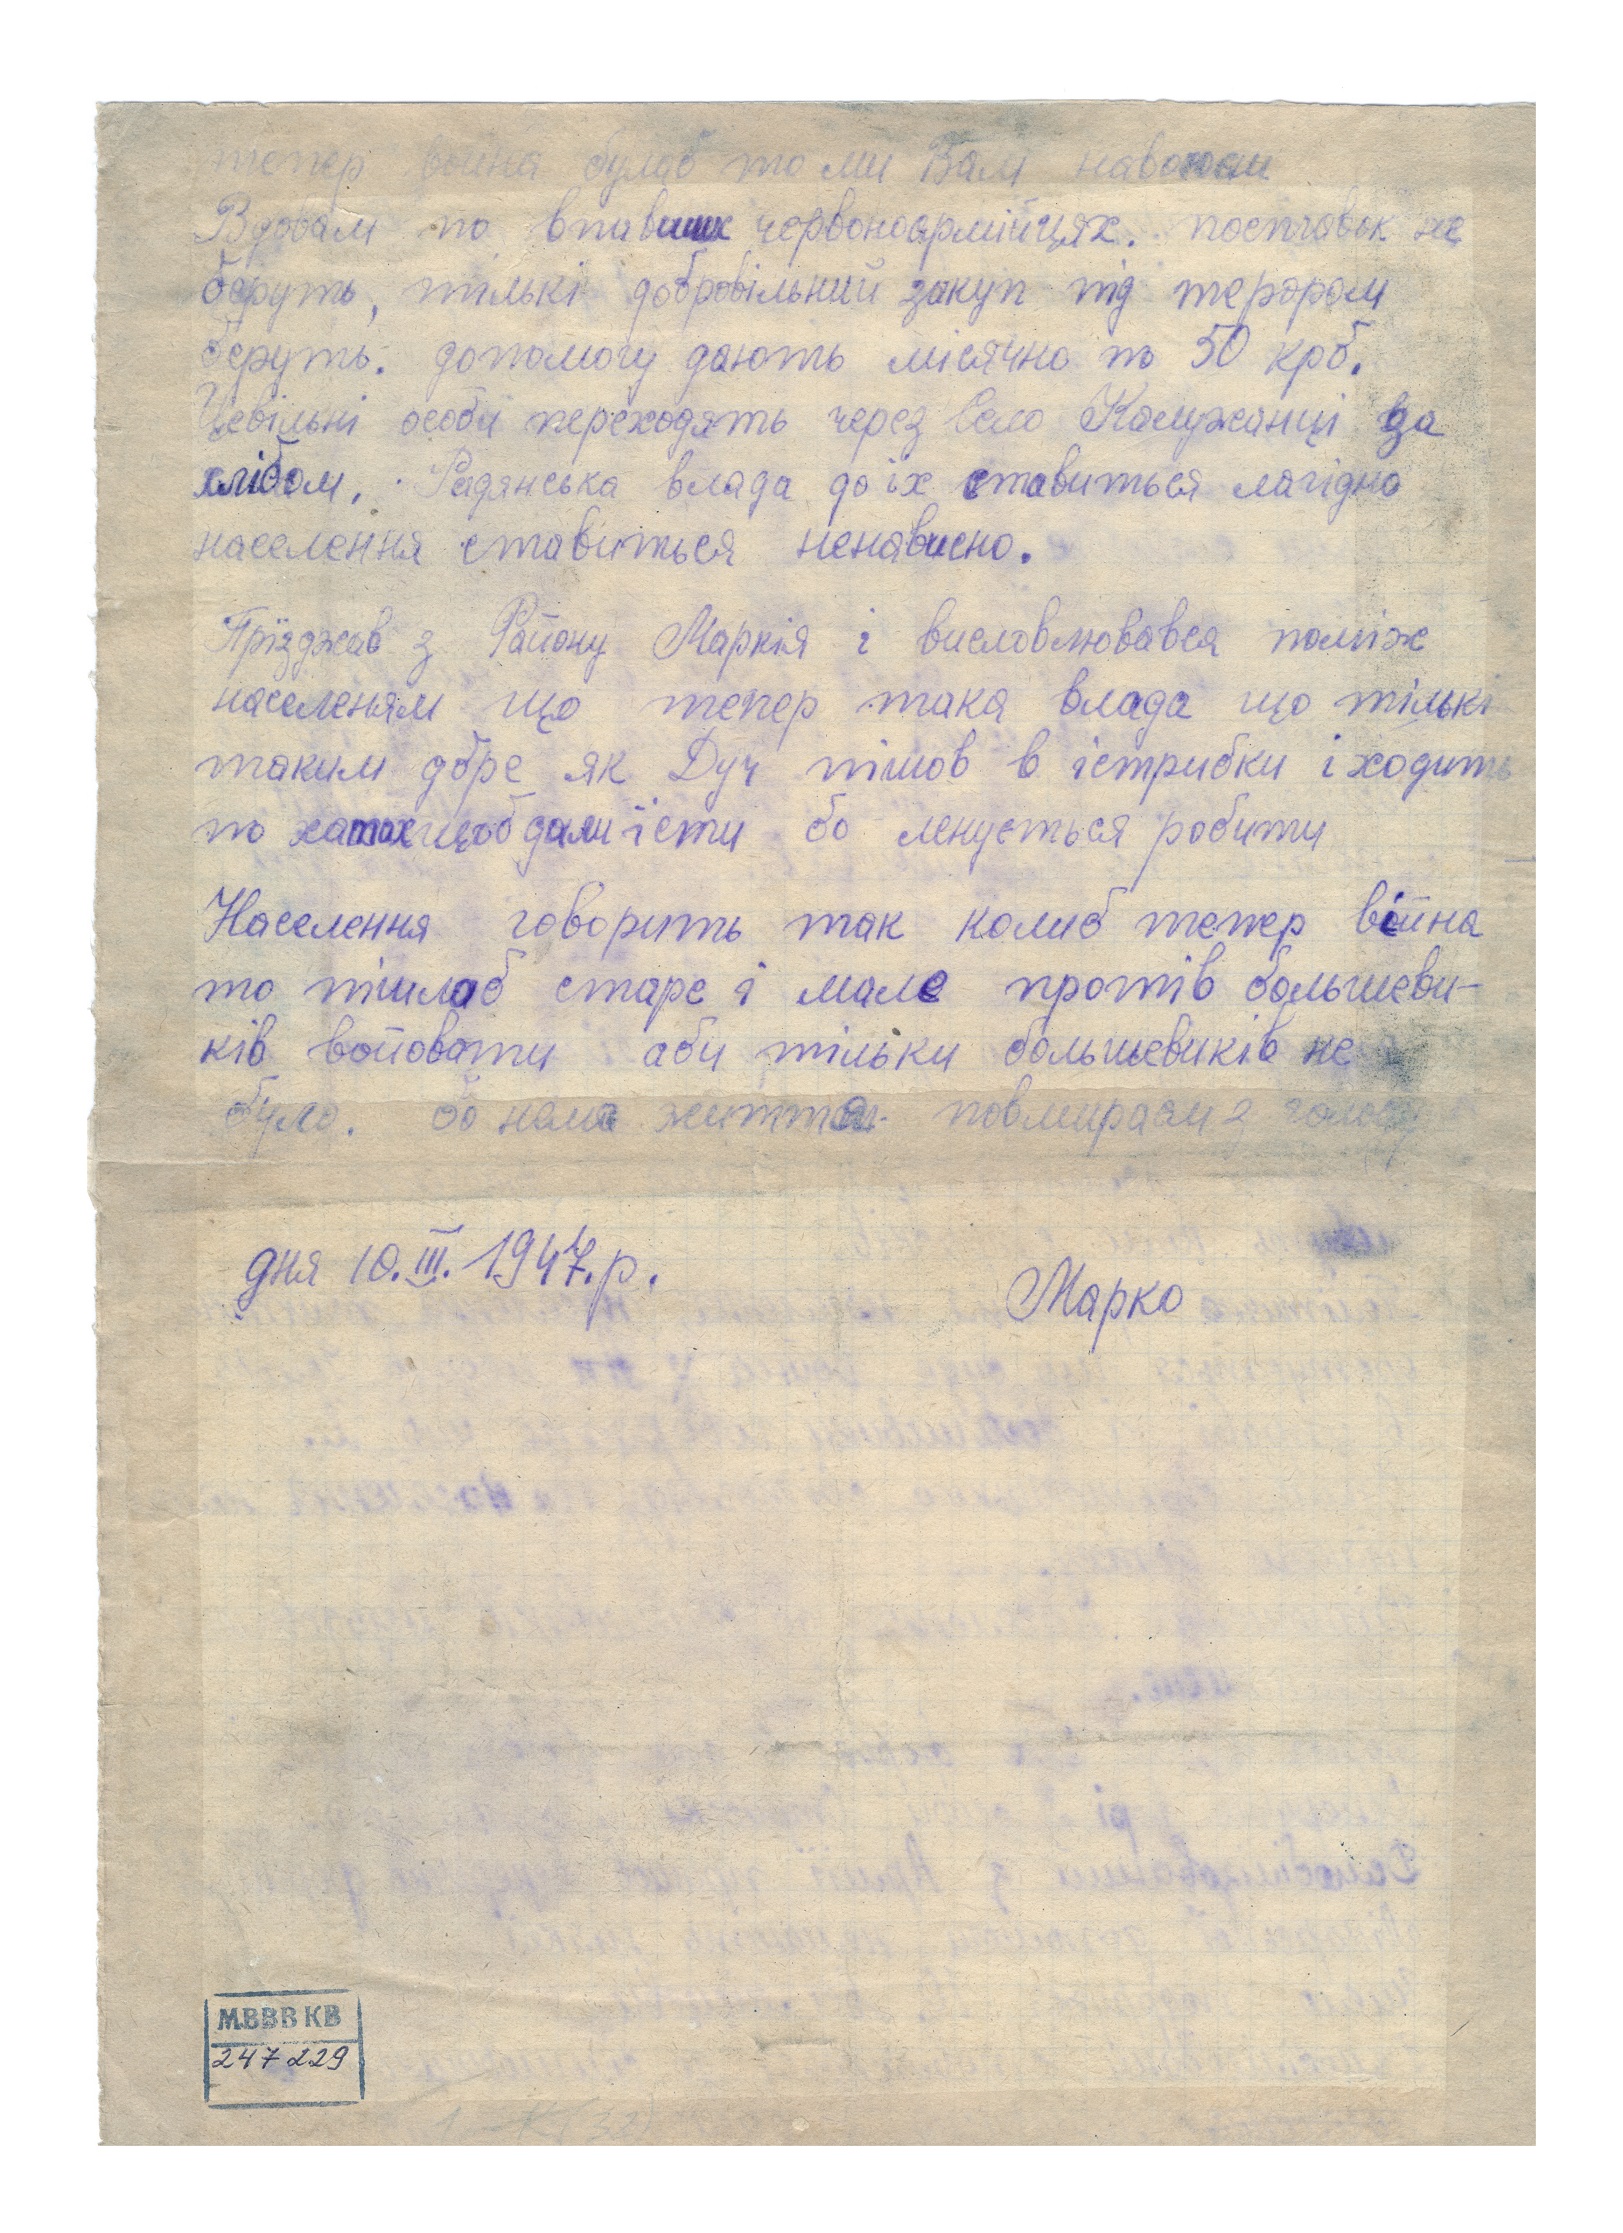 тепер война булаб то ми Вам навоюєм
Вдовам по впавших червоноармійцях. поставок не
беруть, тількі добровільний закуп під терором
беруть. допомогу дають місячно по 50 крб.
Цевільні особи переходять через Село Калужанці за
хлібом. Радянська влада до їх ставиться лагідно
населення ставиться ненависно.
Приїзджав з Району Маркія і висловлювався поміж
населеням що тепер така влада що тількі
таким добре як Дуч пішов в істрибки і ходить
по хатах щоб дали їсти бо ленується робити
Населення говорить так колиб тепер война
то пішлаб старе і мале протів большеви-
ків войовати аби тільки большевиків не
було. бо нема життя повмираєм з голоду
дня 10.III.1947.р.
Марко
М.ВВВ КВ
247229